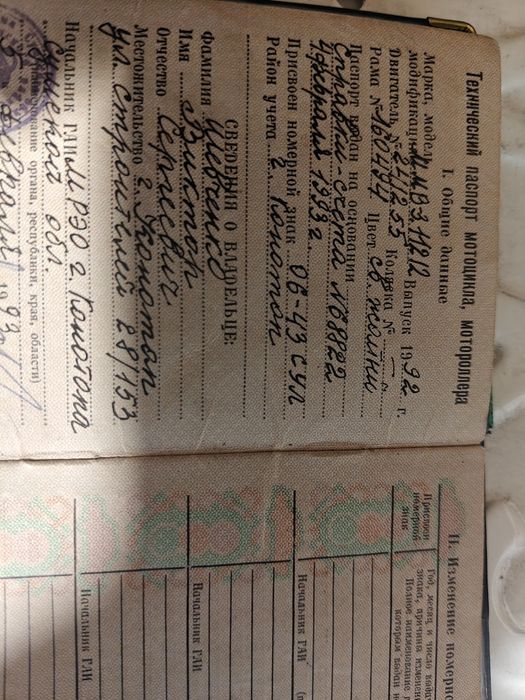 Технический паспорт мотоцикла, мотороллера
I. Общие данные
Марка, модель,
модификация ММВЗ 11212 Выпуск 1992 г.
Двигатель № 241253 Коляска № —
Рама № Цвет св. жёлтый
Паспорт выдан на основании
Справки-счета №68822
4 февраля 1993 г
Присвоен номерной знак 06-43 СУЛ
Район учета г. Конотоп
СВЕДЕНИЯ О ВЛАДЕЛЬЦЕ:
Фамилия Шевченко
Имя Виктор
Отчество Сергеевич
Местожительство г. Конотоп
ул Строителей 28/153
Начальник ГАИ МРЭО г Конотопа
Сумской обл.
органа, республики, края, области)
II. Изменение
Присвоен
номерной
знак
Год, месяц и число
знака, причина
Полное наименование
котором выдан
Начальник ГАИ
Начальник ГАИ
Начальник ГАИ